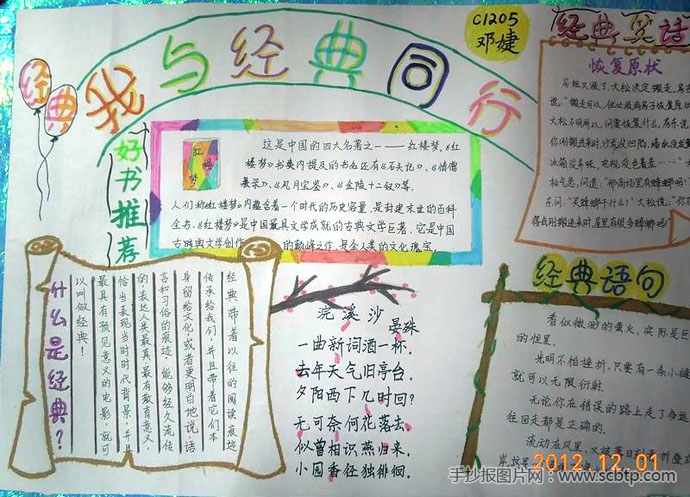 C1205
邓婕
经典
我与经典同行
经典笑话
恢复原状
好书推荐
红楼梦
这是中国的四大名著之一——红楼梦,《红
楼梦》书类内提及的书名还有《石头记》、《情僧
录》、《风月宝鉴》、《金陵十二钗》等.
人们称《红楼梦》内蕴含着一个时代的历史容量,是封建末世的百科
全书,《红楼梦》是中国最具文学成就的古典文学巨著,它是中国
古典文学创作 的巅峰之作,是全人类的文化瑰宝.
什么是经典?
经典,带着以往的阅读痕迹
传承给我们,并且带着它们本
身留给文化,或者更明白地说,语
言和习俗的痕迹.能够经久流传
的表达人类最真、最有教育意义,
恰当表现当时时代背景,并且
最具有预见意义的电影,就可
以叫做经典!
浣溪沙
晏殊
一曲新词酒一杯,
去年天气旧亭台.
夕阳西下几时回?
无可奈何花落去,
似曾相识燕归来,
小园香径独徘徊.
经典语句
看似微渺的萤火,实际是
的恒星.
光明不怕挫折,只要有一条小缝
就可以无限衍射.
无论你在错误的路上走了多远
往回走都是正确的.
2012.12.01
手抄报图片网·www.scbtp.com